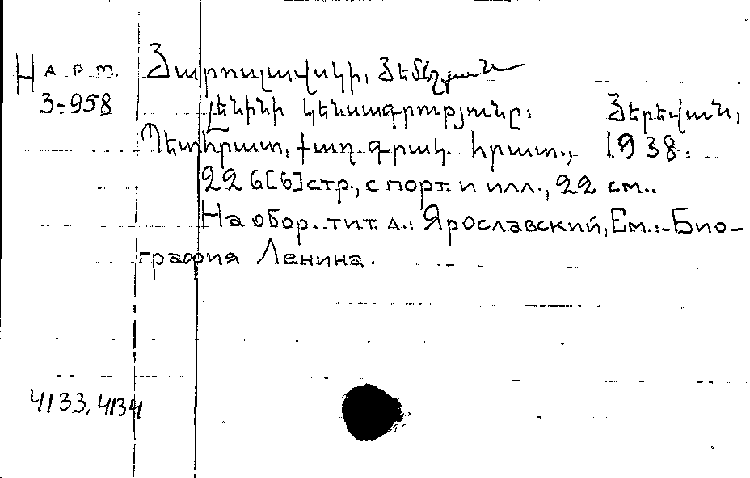 На р.т. Յարոսլավսկի, Յեմելյան
3-958 Լենինի կենսագրությունը: Յերեվան,
Պետհրատ, քաղ. գրակ. հրատ., 1938.
226[6] стр., с порт. и илл., 22 см..
На обор. тит. л.: Ярославский, Ем.:-Био-
графия Ленина.
4133, 4134